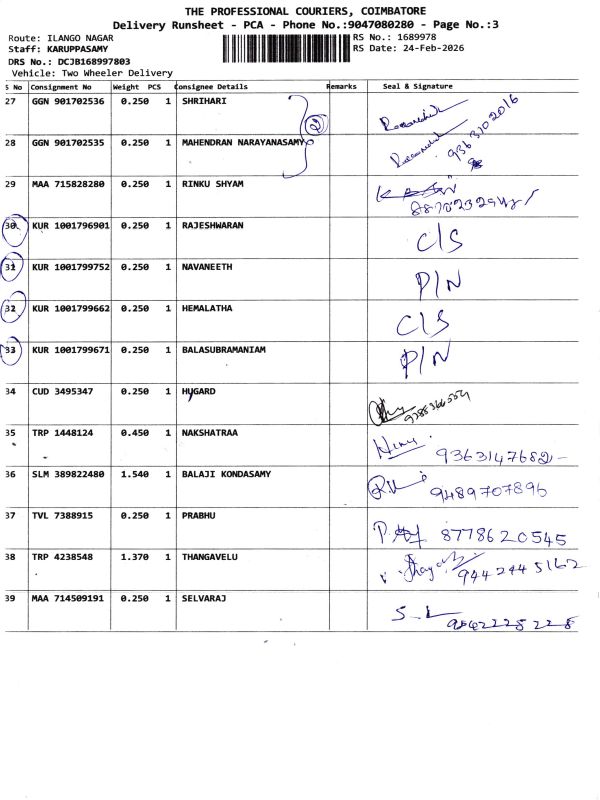 THE PROFESSIONAL COURIERS, COIMBATORE
Delivery Runsheet - PCA - Phone No.:9047080280 - Page No.:3
Route: ILANGO NAGAR RS No.: 1689978
Staff: KARUPPASAMY RS Date: 24-Feb-2026
DRS No.: DCJB168997803
Vehicle: Two Wheeler Delivery
S No Consignment No Weight PCS Consignee Details Remarks Seal & Signature
27 GGN 901702536 0.250 1 SHRIHARI
2
28 GGN 901702535 0.250 1 MAHENDRAN NARAYANASAMY 9363102016
29 MAA 715828280 0.250 1 RINKU SHYAM
30 KUR 1001796901 0.250 1 RAJESHWARAN C/S
31 KUR 1001799752 0.250 1 NAVANEETH P/N
32 KUR 1001799662 0.250 1 HEMALATHA C/S
33 KUR 1001799671 0.250 1 BALASUBRAMANIAM P/N
34 CUD 3495347 0.250 1 HUGARD
35 TRP 1448124 0.450 1 NAKSHATRAA 9363147682
36 SLM 389822480 1.540 1 BALAJI KONDASAMY 9489707896
37 TVL 7388915 0.250 1 PRABHU 8778620545
38 TRP 4238548 1.370 1 THANGAVELU 9442445162
39 MAA 714509191 0.250 1 SELVARAJ